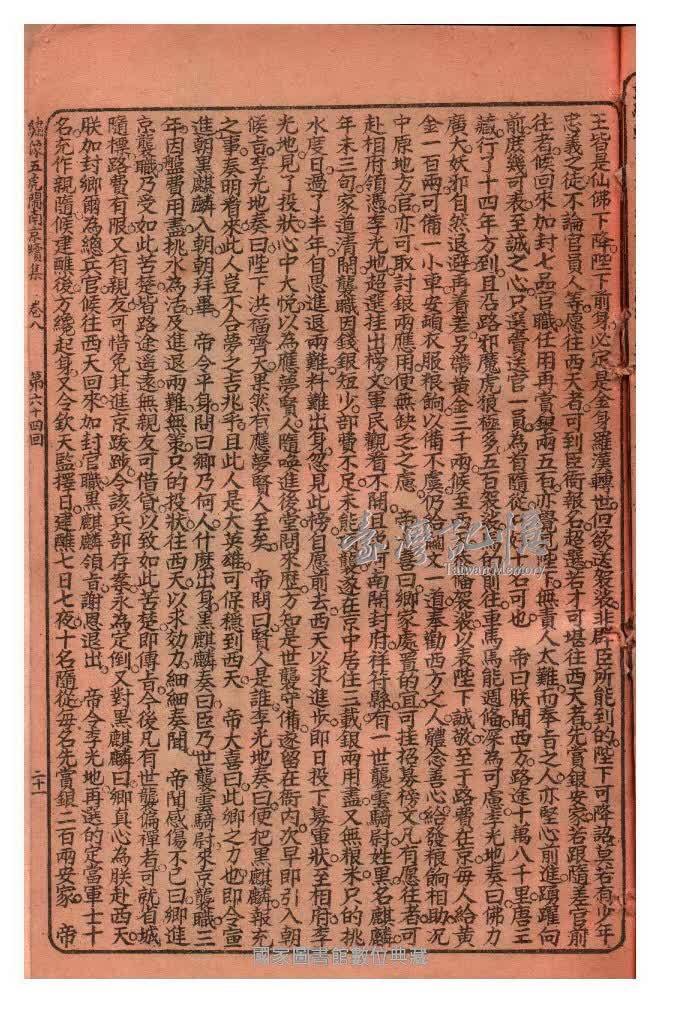 王皆是仙佛下降陛下前身必定是金身羅漢轉世但欲送袈裟非群臣所能到的陛下可降詔員若有少年
忠義之徒不論官員人等愿往西天者可到臣衙報名超選若才可堪往西天者先賞銀安家若跟隨差官前
往者候回來加封七品官職任用再賞銀兩五百亦覺見陛下無責人太難而奉旨之人亦堅心前進踴躍向
前庶幾可表至誠之心只選賢送官一員為首隨從 可也 帝曰朕聞西方路途十萬八千里唐三
藏行了十四年方到且沿路邪魔虎狼極多五百袈裟 往車馬馬能週備深為可慮李光地奏曰佛力
廣大妖邪自然退避再着差另帶黃金三千兩候至 袈裟以表陛下誠敬至于路費在京每人給黃
金一百兩可備一小車安頓衣服粮餉以備不虞仍 一道奉勸西方之人體念善心給發粮餉相助況
中原地方官亦可取討銀兩應用便無缺乏之慮 帝 喜曰卿家處置的宜可挂招募榜文凡有愿往者可
赴相府領憑李光地超選挂出榜文軍民觀看不関且 河南開封府祥符縣有一世襲雲騎尉姓黑名麒麟
年未三旬家道清閒襲職因錢銀短少部費不足未能 襲遂在京中居住三載銀兩用盡又無根米只的挑
水度日過了半年自思進退兩難料難出身忽見此榜自愿前去西天以求進步即日投下募軍狀至相府李
光地見了投狀心中大悅以為應夢賢人隨喚進後堂問來歷方知是世襲守備遂留在衙內次早即引入朝
候旨李光地奏曰陛下洪福齊天果然有應夢賢人至矣 帝問曰賢人是誰李光地奏曰便把黑麒麟報充
之事奏明看來此人豈不合夢之吉兆乎且此人是大英雄可保穩到西天 帝大喜曰此卿之力也即令宣
進朝黑麒麟入朝朝拜畢 帝令平身問曰卿乃何人什麼出身黑麒麟奏曰臣乃世襲雲騎尉來京襲職三
年因盤費用盡挑水為活及進退兩難無策只的投狀往西天以求効力細細奏聞 帝聞感傷不已曰卿進
京襲職乃受如此苦楚皆路途遥遠無親友可借貸以致如此苦楚即傳旨今後凡有世襲偏裨者可就省城
隨標路費有限又有親友可惜免其進京跋跡今該兵部存案永為定倒又對黑麒麟曰卿真心為朕赴西天
朕加封卿爾為總兵官候往西天回來加封官職黑麒麟領旨謝恩退出 帝令李光地再選的定當軍士十
名充作親隨候建醮後方纔起身又令欽天監擇日建醮七日七夜十名隨從每名先賞銀二百兩安家 帝
繡像五虎鬧南京續集 卷八 第六十四回 二十一
臺灣記憶
Taiwan Memory
國家圖書館數位典藏